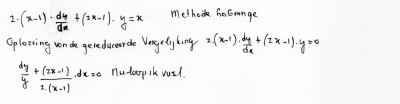 2.(x-1).dy/dx + (2x-1).y = x Methode LaGrange
Oplossing van de gereduceerde Vergelijking 2.(x-1).dy/dx + (2x-1).y = 0
dy/y + (2x-1)/2.(x-1) .dx = 0 Nu loop ik vast.